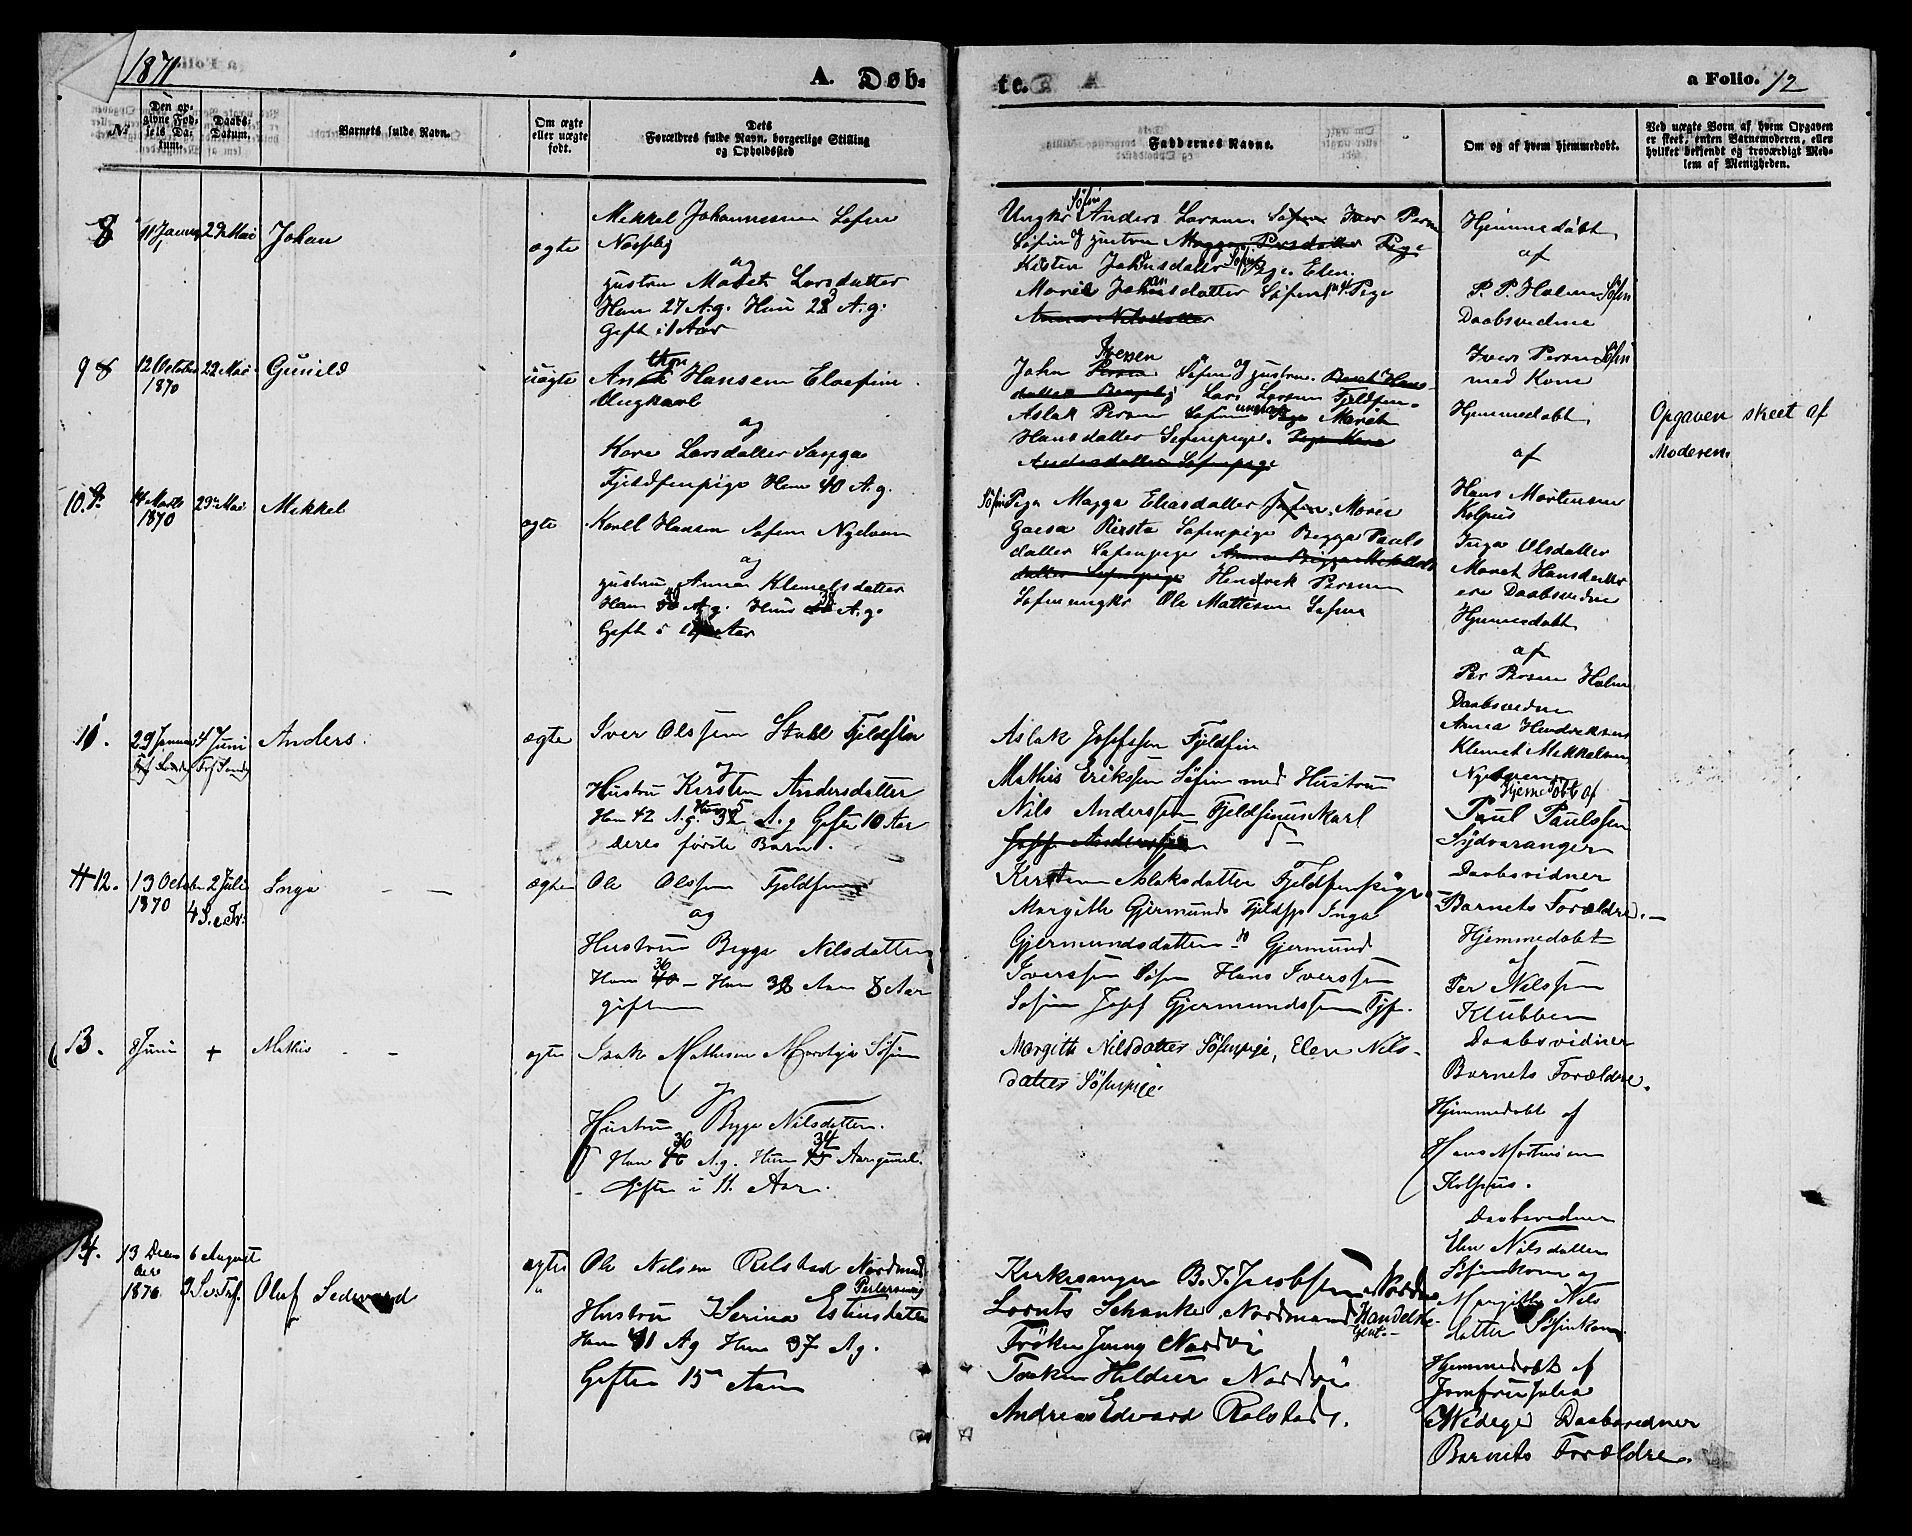 1871
A. Døb-
te.
a Folio. 12
№
Den opgivne Fødsels Datum.
Daabs-Datum.
Barnets fulde Navn.
Om ægte eller uægte født.
Dets Forældres fulde Navn, borgerlige Stilling og Opholdssted
Faddernes Navne.
Om og af hvem hjemmedøbt.
Ved uægte Børn af hvem Opgaven er skeet, enten Barnemoderen, eller hvilket bekjendt og troværdigt Medlem af Menigheden.
8
11 Januar
29 Mai
Johan
ægte
Mekkel Johannesen Søfin
Næsseby
og
Hustru Mareth Larsdatter
Han 27 A.g. Hun 23 A.g.
Gift i 1 Aar
Ungkr Anders Larsen Søfin Iver Persen
Søfin Hustru Magga Persdatter Pige
Kirsten Johnsdatter Søfin Pige. Elen
Marie Johansdatter Søfin Pige
Anna Nilsdatter
Hjemmedøbt
af
P. P. Holm Søfin
Daabsvidne
Iver Persen Søfin
med Kone
9
12 October 1870
29 Mai
Gunild
uægte
Anthon Hansen Elvefin
Ungkarl
og
Kare Larsdatter
Fjeldfinpige Hun 40 A.g.
John Iversen Søfin Hustru
Lars Larsen Fjeldfin
Aslak Persen Søfin ungkr Mareth
Hansdatter Søfinpige. Pige Kare
Andersdatter Søfinpige
Hjemmedøbt
af
Hans Mortensen
Kolpus
Inga Olsdatter
Maret Hansdatter
ere Daabsvidne
Opgaven skeet af
Moderen
10.
14 Marts 1870
29 Mai
Mekkel
ægte
Karll Hansen Søfin Nyelven
og
Hustru Anna Klemetsdatter
Han 40 A.g. Hun 38 A.g.
Gift i Aar
Søfin Pige Magga Eliasdatter Marie
Gaesa Pirsta Søfinpige Begga Pauls
datter Søfinpige
datter Søfinpige Hendrek Persen
Søfin ungkr Ole Mattesen Søfin
Hjemmedøbt
af
Per Persen Holm
Daabsvidne
Anna Hendriksen
Klemet Mekkelsen
Nyelven
11.
29 Januar
4 Juni
Anders.
ægte
Iver Olssen Stahl Fjeldfin
og
Hustru Kirsten Andersdatter
Han 42 A.g. Hun 35 A.g Gifte 10 Aar
deres første Barn.
Aslak Josefsen Fjeldfin
Mathis Erikssen Søfin med Hustru
Nils Anderssen Fjeldfinunkarl
Josef Anderssen
Hjemmedøbt af
Paul Paulssen
Sydvaranger
Daabsvidner
Barnets Forældre.
12.
13 Octobr 1870
2 Juli
4 S. e. Tr.
Inga
ægte
Ole Olssen Fjeldfin
og
Hustru Begga Nilsdatter
Han 36 – Hun 38 Aar 8 Aar
gifte
Kirsten Aslaksdatter Fjeldfinpige
Margith Gjermunds Fjeldfp Inga
Gjermundsdatter do Gjermund
Iverssen Søfin Hans Iverssen
Søfin Josef Gjermundssen Fjf.
Hjemmedøbt
af
Per Nilssen
Klubben
Daabsvidner
Barnets Forældre.
13.
8 Juni
+
Mathis
ægte
Isak Mathisen Søfin
og
Hustru Begga Nilsdatter.
Han 36 A.g. Hun 34 Aar gamel.
Gifte i 11. Aar.
Margith Nilsdatter Søfinpige, Elen Nils-
datter Søfinpige.
Hjemmedøbt af
Hans Mortensen
Kolpus.
Daabsvidner
Elen Nilsdatter
Søfinkone og
Margithe Nils
datter Søfinkone
14.
13 Decbr 1870
6 August
9 S. e. Tref.
Oluf Sedevard
ægte
Ole Nilsen Rolstad Nordmand
Hustru Iserina Estensdatter
Han 41 Ag Hun 37 Ag.
Gifte 15 Aar
Kirkesanger B. J. Jacobsen Nordm
Lornts Schanke Nordmand Handelsbetjent
Frøken Jenny Nordvi
Frøken Heldur Nordvi
Andreas Edvard Rolstad.
Hjemmedøbt af
Jomfru Julia
Wedege Daabsvidner
Barnets Forældre.